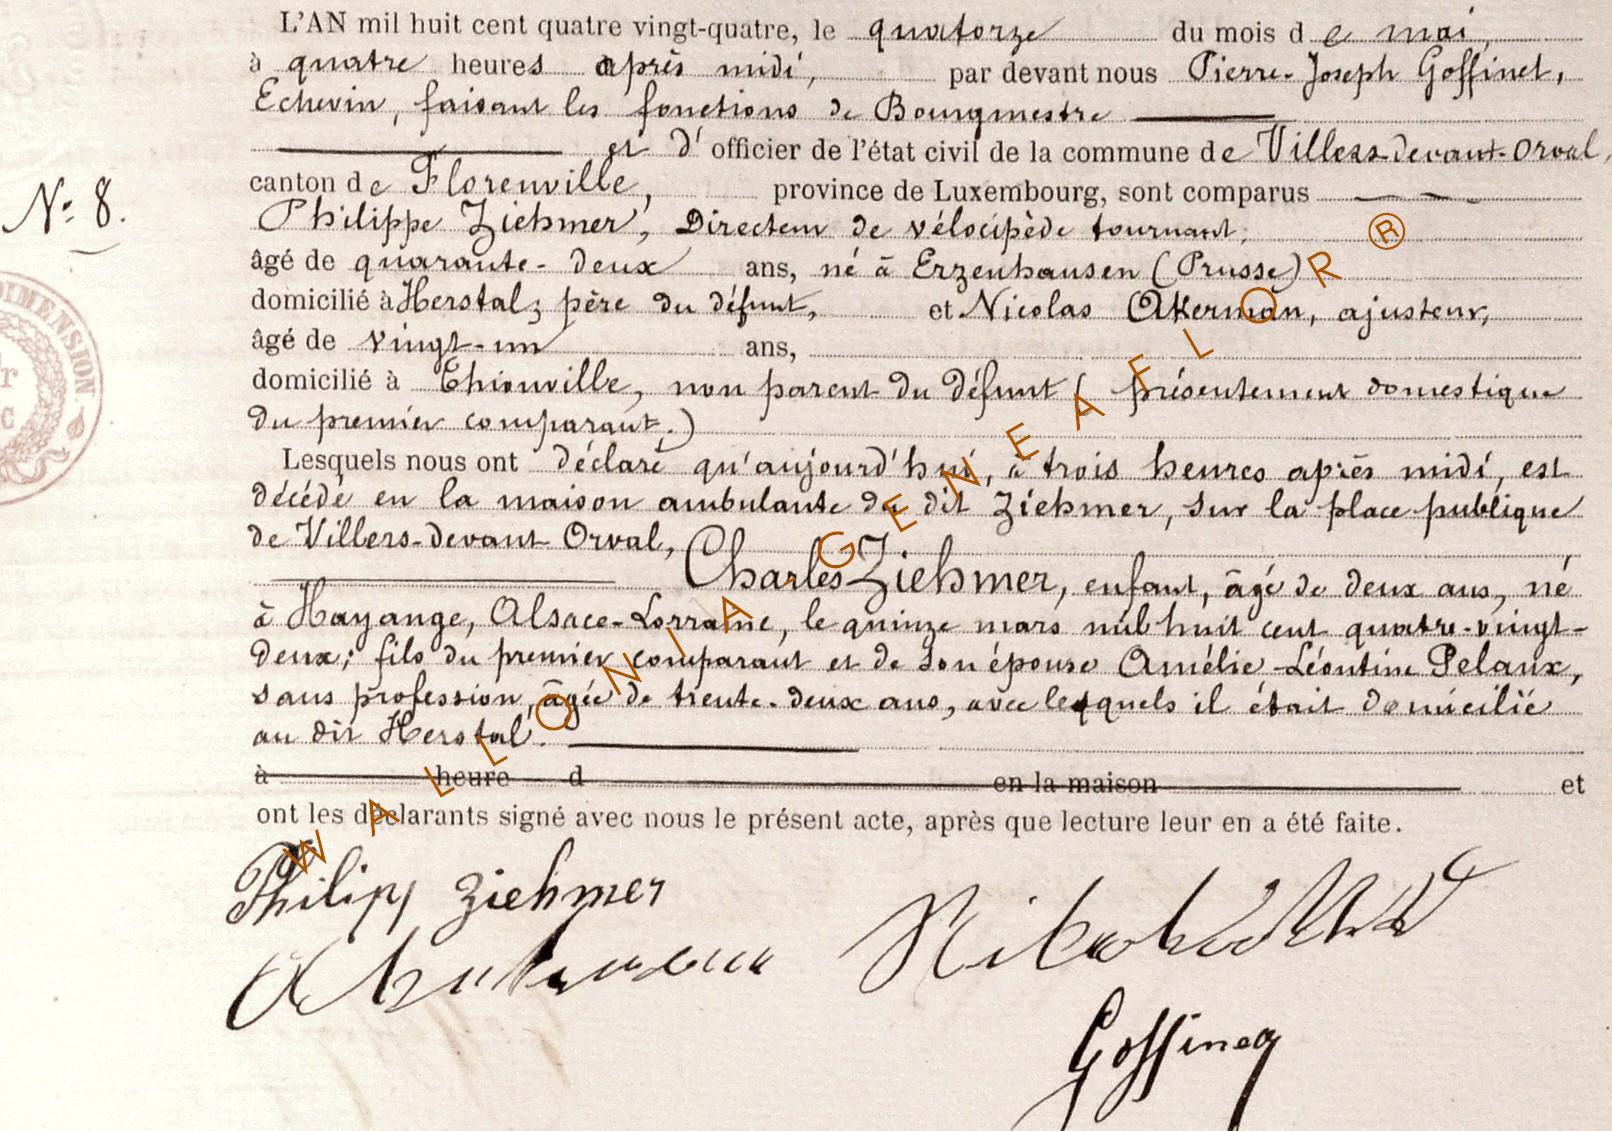 L'AN mil huit cent quatre vingt-quatre, le quatorze du mois de mai,
à quatre heures après midi, par devant nous Pierre-Joseph Goffinet,
Echevin, faisant les fonctions de Bourgmestre
et d'officier de l'état civil de la commune de Villers-devant-Orval,
canton de Florenville, province de Luxembourg, sont comparus
N° 8.
Philippe Ziehmer, Directeur de vélocipède tournant,
âgé de quarante-deux ans, né à Erzenhausen (Prusse)
domicilié à Herstal, père du défunt, et Nicolas Akerman, ajusteur,
âgé de vingt-un ans,
domicilié à Thionville, non parent du défunt (présentement domestique
du premier comparant.)
Lesquels nous ont déclaré qu'aujourd'hui, à trois heures après midi, est
décédé en la maison ambulante du dit Ziehmer, sur la place publique
de Villers-devant-Orval,
Charles Ziehmer, enfant, âgé de deux ans, né
à Hayange, Alsace-Lorraine, le quinze mars mil huit cent quatre-vingt-
deux; fils du premier comparant et de son épouse Amélie-Léontine Pelaux,
sans profession, âgée de trente-deux ans, avec lesquels il était domicilié
au dit Herstal.
à heure d en la maison et
ont les déclarants signé avec nous le présent acte, après que lecture leur en a été faite.
Philipp Ziehmer
Goffinet
DIMENSION
WALLONIA.GENEAFLOR ®